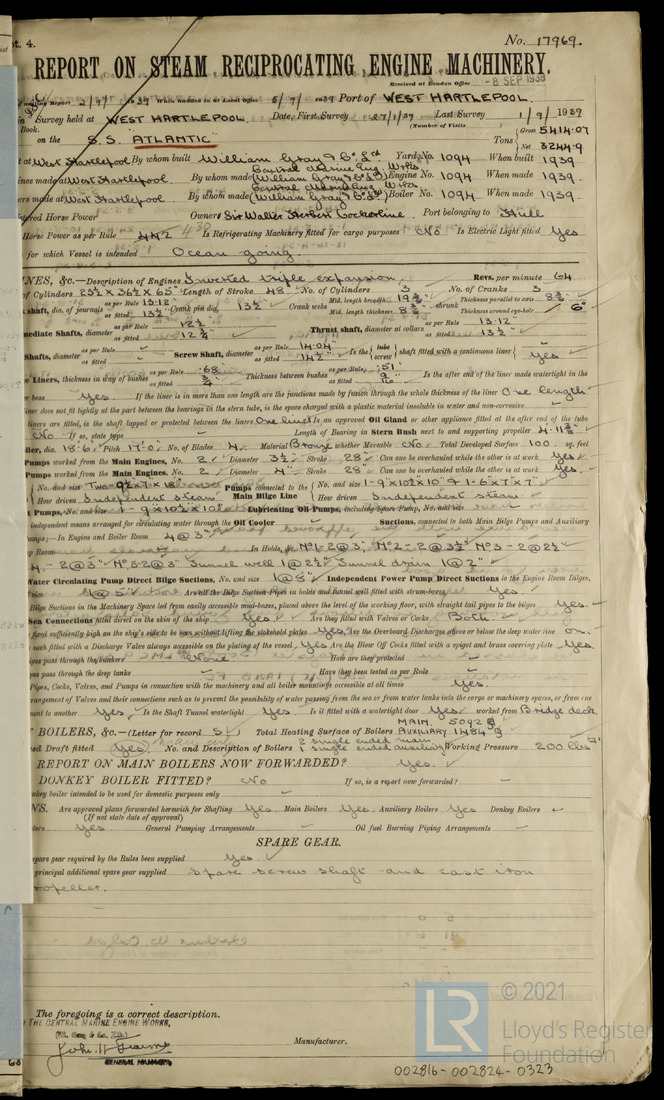 pt. 4.
No. 17969.
REPORT ON STEAM RECIPROCATING ENGINE MACHINERY.
Received at London Office -8 SEP 1939
writing Report 2/9/1939 When handed in at Local Office 5/9/1939 Port of WEST HARTLEPOOL.
in Survey held at WEST HARTLEPOOL. Date, First Survey 27/1/39 Last Survey 1/9/1939
Book. (Number of Visits)
on the S.S. "ATLANTIC" Tons Gross 5414.07 Net 3244.9
at West Hartlepool By whom built William Gray & Co. Ld Yard No. 1094 When built 1939
ines made at West Hartlepool By whom made Central Marine Eng. Wrks (William Gray & Co Ld) Engine No. 1094 When made 1939
ers made at West Hartlepool By whom made Central Marine Eng. Wrks (William Gray & Co Ld) Boiler No. 1094 When made 1939.
tered Horse Power Owners Sir Walter Herbert Cockerline. Port belonging to Hull
Horse Power as per Rule 442 430 Is Refrigerating Machinery fitted for cargo purposes No Is Electric Light fitted Yes
for which Vessel is intended Ocean going.
NES, &c.—Description of Engines Inverted triple expansion. Revs. per minute 64
of Cylinders Length of Stroke 48" No. of Cylinders 3 No. of Cranks 3
shaft, dia. of journals as per Rule 13.12 as fitted 13½" Crank pin dia. 13½" Crank webs Mid. length breadth Mid. length thickness shrunk Thickness parallel to axis Thickness around eye-hole 6"
mediate Shafts, diameter as per Rule as fitted Thrust shaft, diameter at collars as per Rule 13.12 as fitted 13½"
Shafts, diameter as per Rule as fitted Screw Shaft, diameter as per Rule 14.04 as fitted 14½" Is the tube screw shaft fitted with a continuous liner Yes
e Liners, thickness in way of bushes as per Rule .68 as fitted ¾" Thickness between bushes as per Rule .51 as fitted 9/16" Is the after end of the liner made watertight in the
er boss Yes. If the liner is in more than one length are the junctions made by fusion through the whole thickness of the liner One length
liner does not fit tightly at the part between the bearings in the stern tube, is the space charged with a plastic material insoluble in water and non-corrosive
liners are fitted, is the shaft lapped or protected between the liners One liner Is an approved Oil Gland or other appliance fitted at the after end of the tube
No If so, state type Length of Bearing in Stern Bush next to and supporting propeller
ller, dia. 18'-6" Pitch 17'-0" No. of Blades 4 Material Bronze whether Moveable No. Total Developed Surface 100 sq. feet
Pumps worked from the Main Engines, No. 2 Diameter 3½" Stroke 28" Can one be overhauled while the other is at work Yes.
Pumps worked from the Main Engines, No. 2 Diameter 4" Stroke 28" Can one be overhauled while the other is at work Yes.
No. and size Two Pumps connected to the Main Bilge Line No. and size 1-9"x10½"x10" & 1-6"x7"x7"
How driven Independent steam How driven Independent steam
t Pumps, No. and size 1-9"x10½"x10" Lubricating Oil Pumps, including Spare Pump, No. and size
independent means arranged for circulating water through the Oil Cooler Suctions, connected to both Main Bilge Pumps and Auxiliary
umps;—In Engine and Boiler Room 4@3"
p Room In Holds, &c. No1-2@3", No2-2@3½", No3-2@2½"
4,-2@3" No5-2@3" Tunnel well 1@2½" Tunnel drain 1@2"
Water Circulating Pump Direct Bilge Suctions, No. and size 1@8" Independent Power Pump Direct Suctions to the Engine Room Bilges,
size 1@5" Are all the Bilge Suction Pipes in holds and tunnel well fitted with strum-boxes Yes.
Bilge Suctions in the Machinery Space led from easily accessible mud-boxes, placed above the level of the working floor, with straight tail pipes to the bilges Yes.
Sea Connections fitted direct on the skin of the ship Yes. Are they fitted with Valves or Cocks Both.
fixed sufficiently high on the ship's side to be seen without lifting the stokehold plates Yes. Are the Overboard Discharges above or below the deep water line on.
each fitted with a Discharge Valve always accessible on the plating of the vessel Yes Are the Blow Off Cocks fitted with a spigot and brass covering plate Yes.
ipes pass through the bunkers None How are they protected
ipes pass through the deep tanks Have they been tested as per Rule
Pipes, Cocks, Valves, and Pumps in connection with the machinery and all boiler mountings accessible at all times Yes.
rrangement of Valves and their connections such as to prevent the possibility of water passing from the sea or from water tanks into the cargo or machinery spaces, or from one
ment to another Yes. Is the Shaft Tunnel watertight Yes. Is it fitted with a watertight door Yes worked from Bridge deck
BOILERS, &c.—(Letter for record S) Total Heating Surface of Boilers MAIN. 5092 AUXILIARY 1484
ed Draft fitted Yes, No. and Description of Boilers 2 single ended main 1 single ended auxiliary Working Pressure 200 lbs
REPORT ON MAIN BOILERS NOW FORWARDED? Yes.
DONKEY BOILER FITTED? No If so, is a report now forwarded?
nkey boiler intended to be used for domestic purposes only
NS. Are approved plans forwarded herewith for Shafting Yes Main Boilers Yes Auxiliary Boilers Yes Donkey Boilers
(If not state date of approval)
ters Yes General Pumping Arrangements Oil fuel Burning Piping Arrangements
SPARE GEAR.
spare gear required by the Rules been supplied Yes.
principal additional spare gear supplied Spare screw shaft and cast iron
propeller.
The foregoing is a correct description.
THE CENTRAL MARINE ENGINE WORKS,
Manufacturer.
GENERAL MANAGER
LR © 2021 Lloyd's Register Foundation
002816-002824-0323